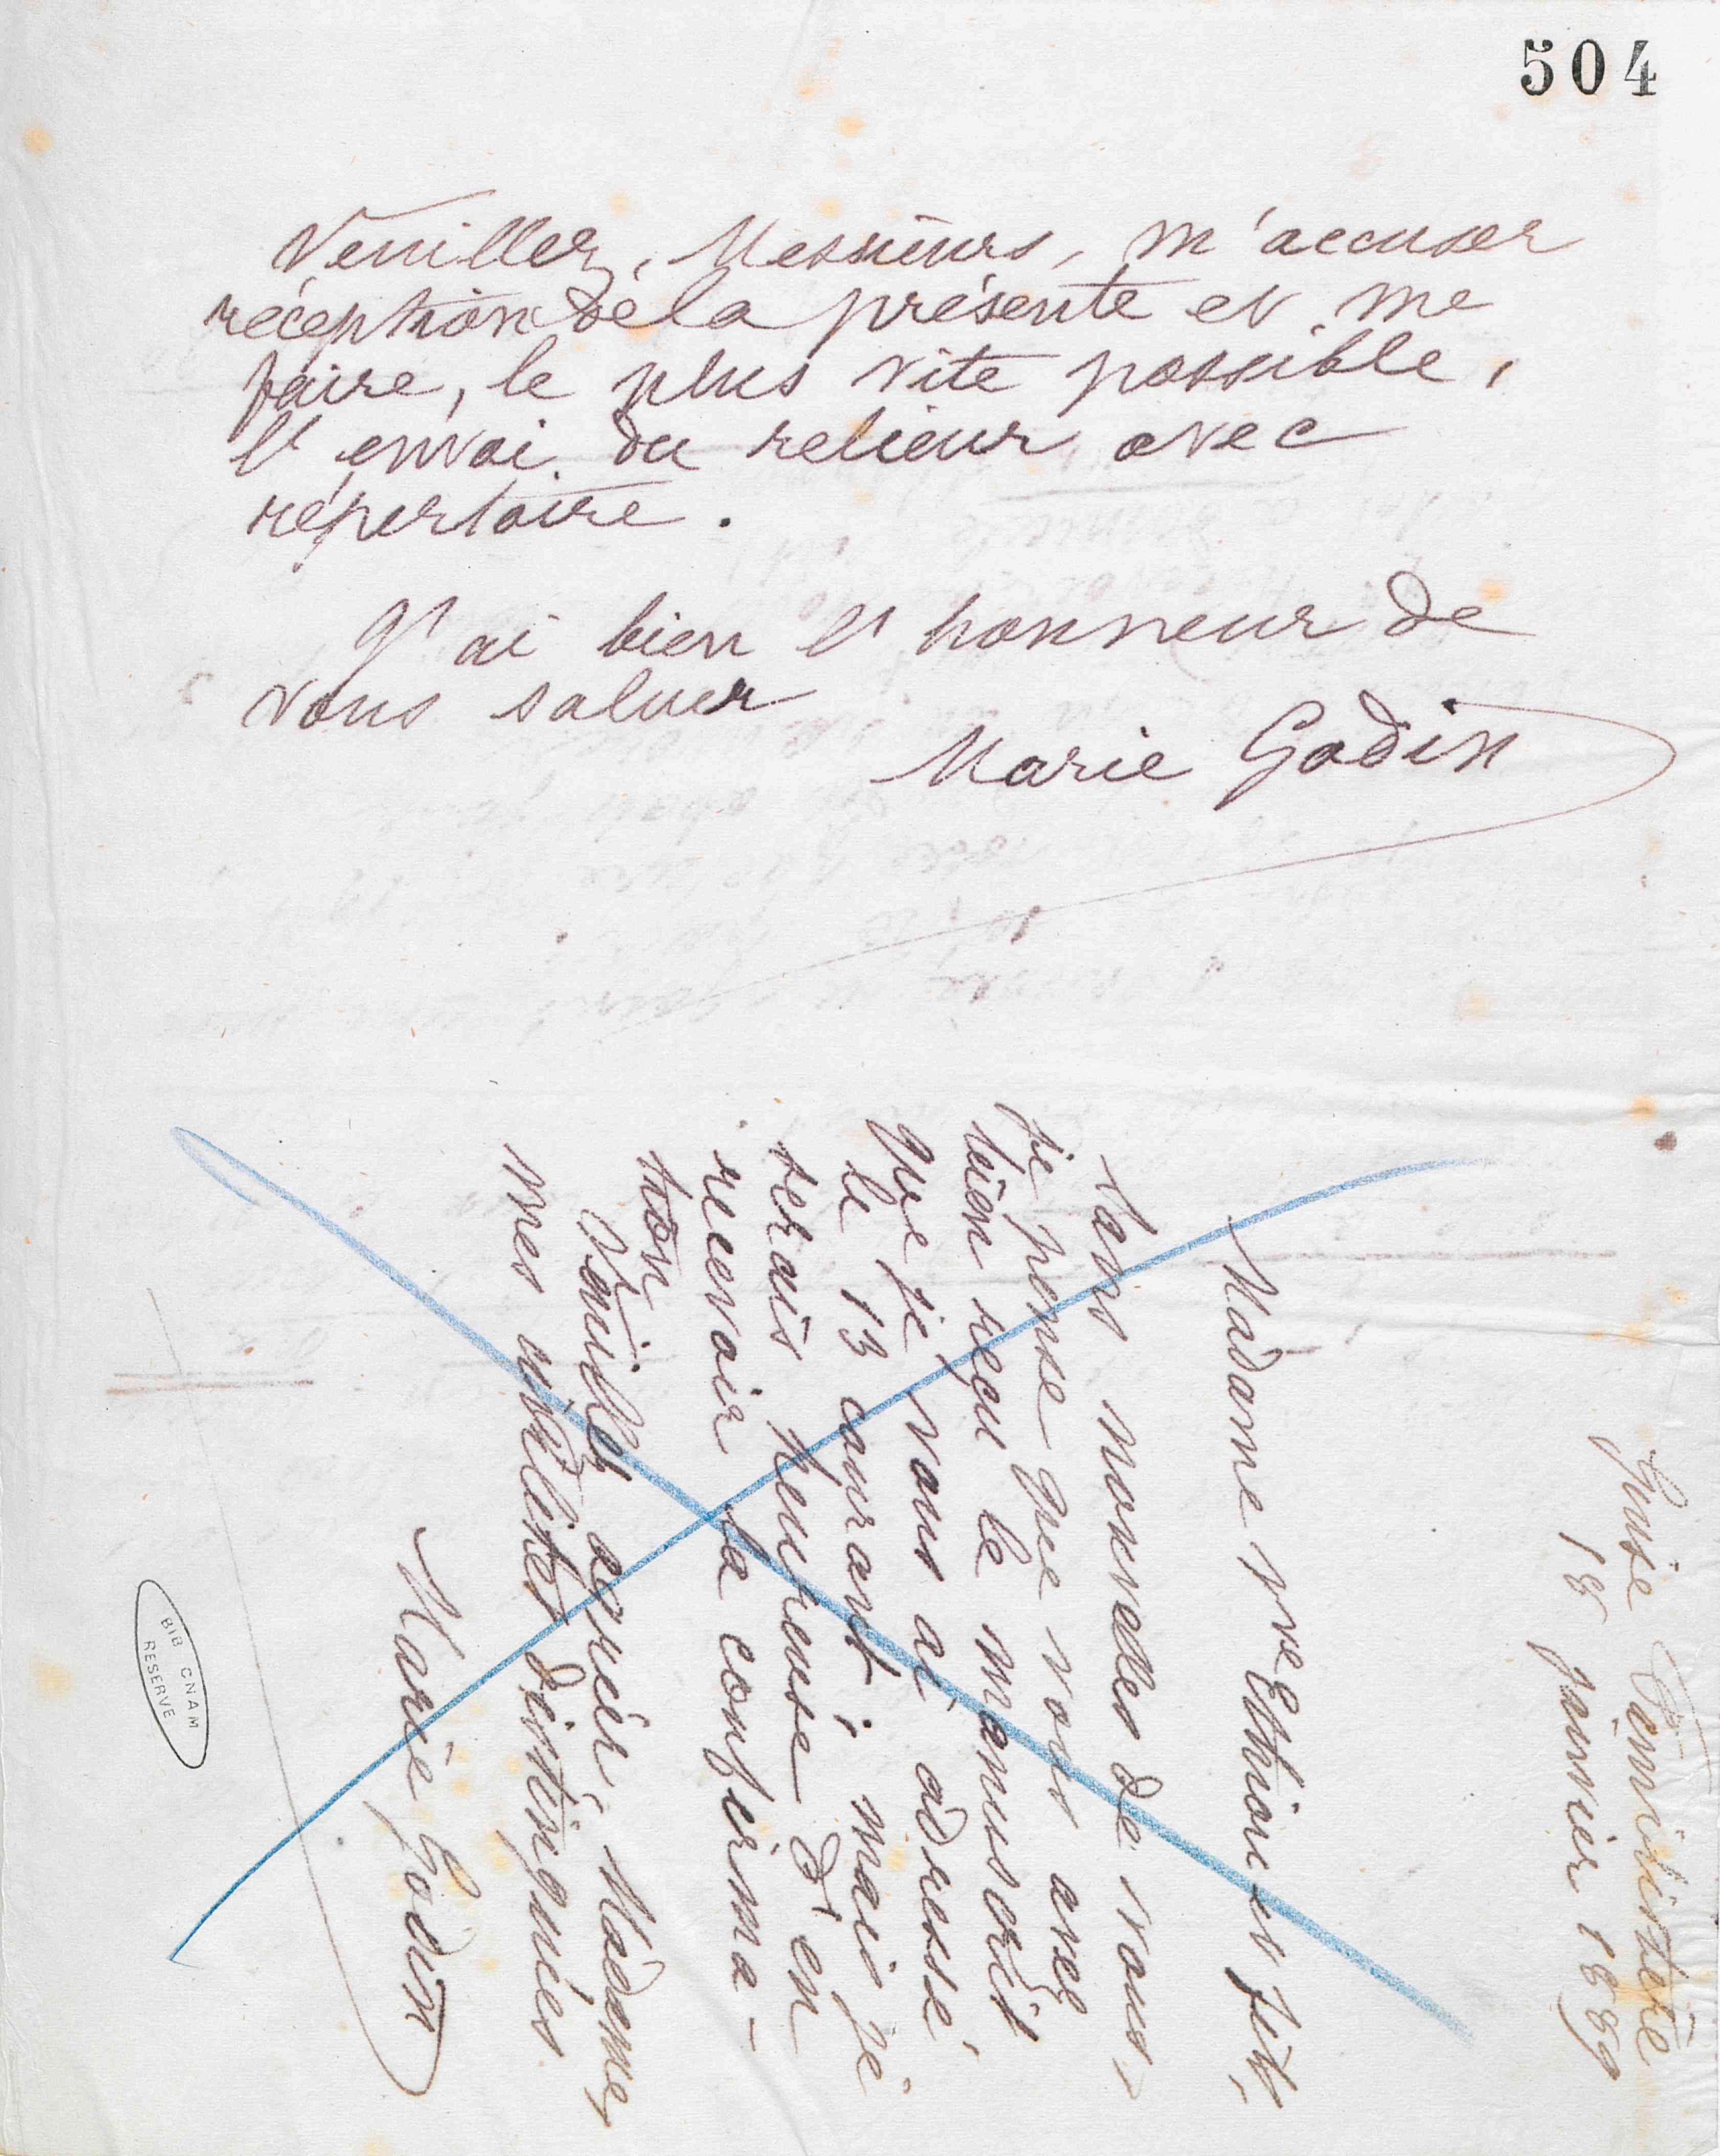 504
Veuillez, Messieurs, m'accuser
réception de la présente et me
faire, le plus vite possible,
l'envoi du relieur avec
répertoire.
J'ai bien l'honneur de
vous saluer
Marie Godin
Guise Familistère
18 janvier 1889
Madame Vve Ethiou et fils,
Sans nouvelles de vous,
je pense que vous avez
bien reçu le manuscrit
que je vous ai adressé
le 13 courant; mais je
serais heureuse d'en
recevoir la confirma-
tion
Veuillez agréer, Madame,
mes civilités distinguées
Marie Godin
BIB CNAM
RESERVE